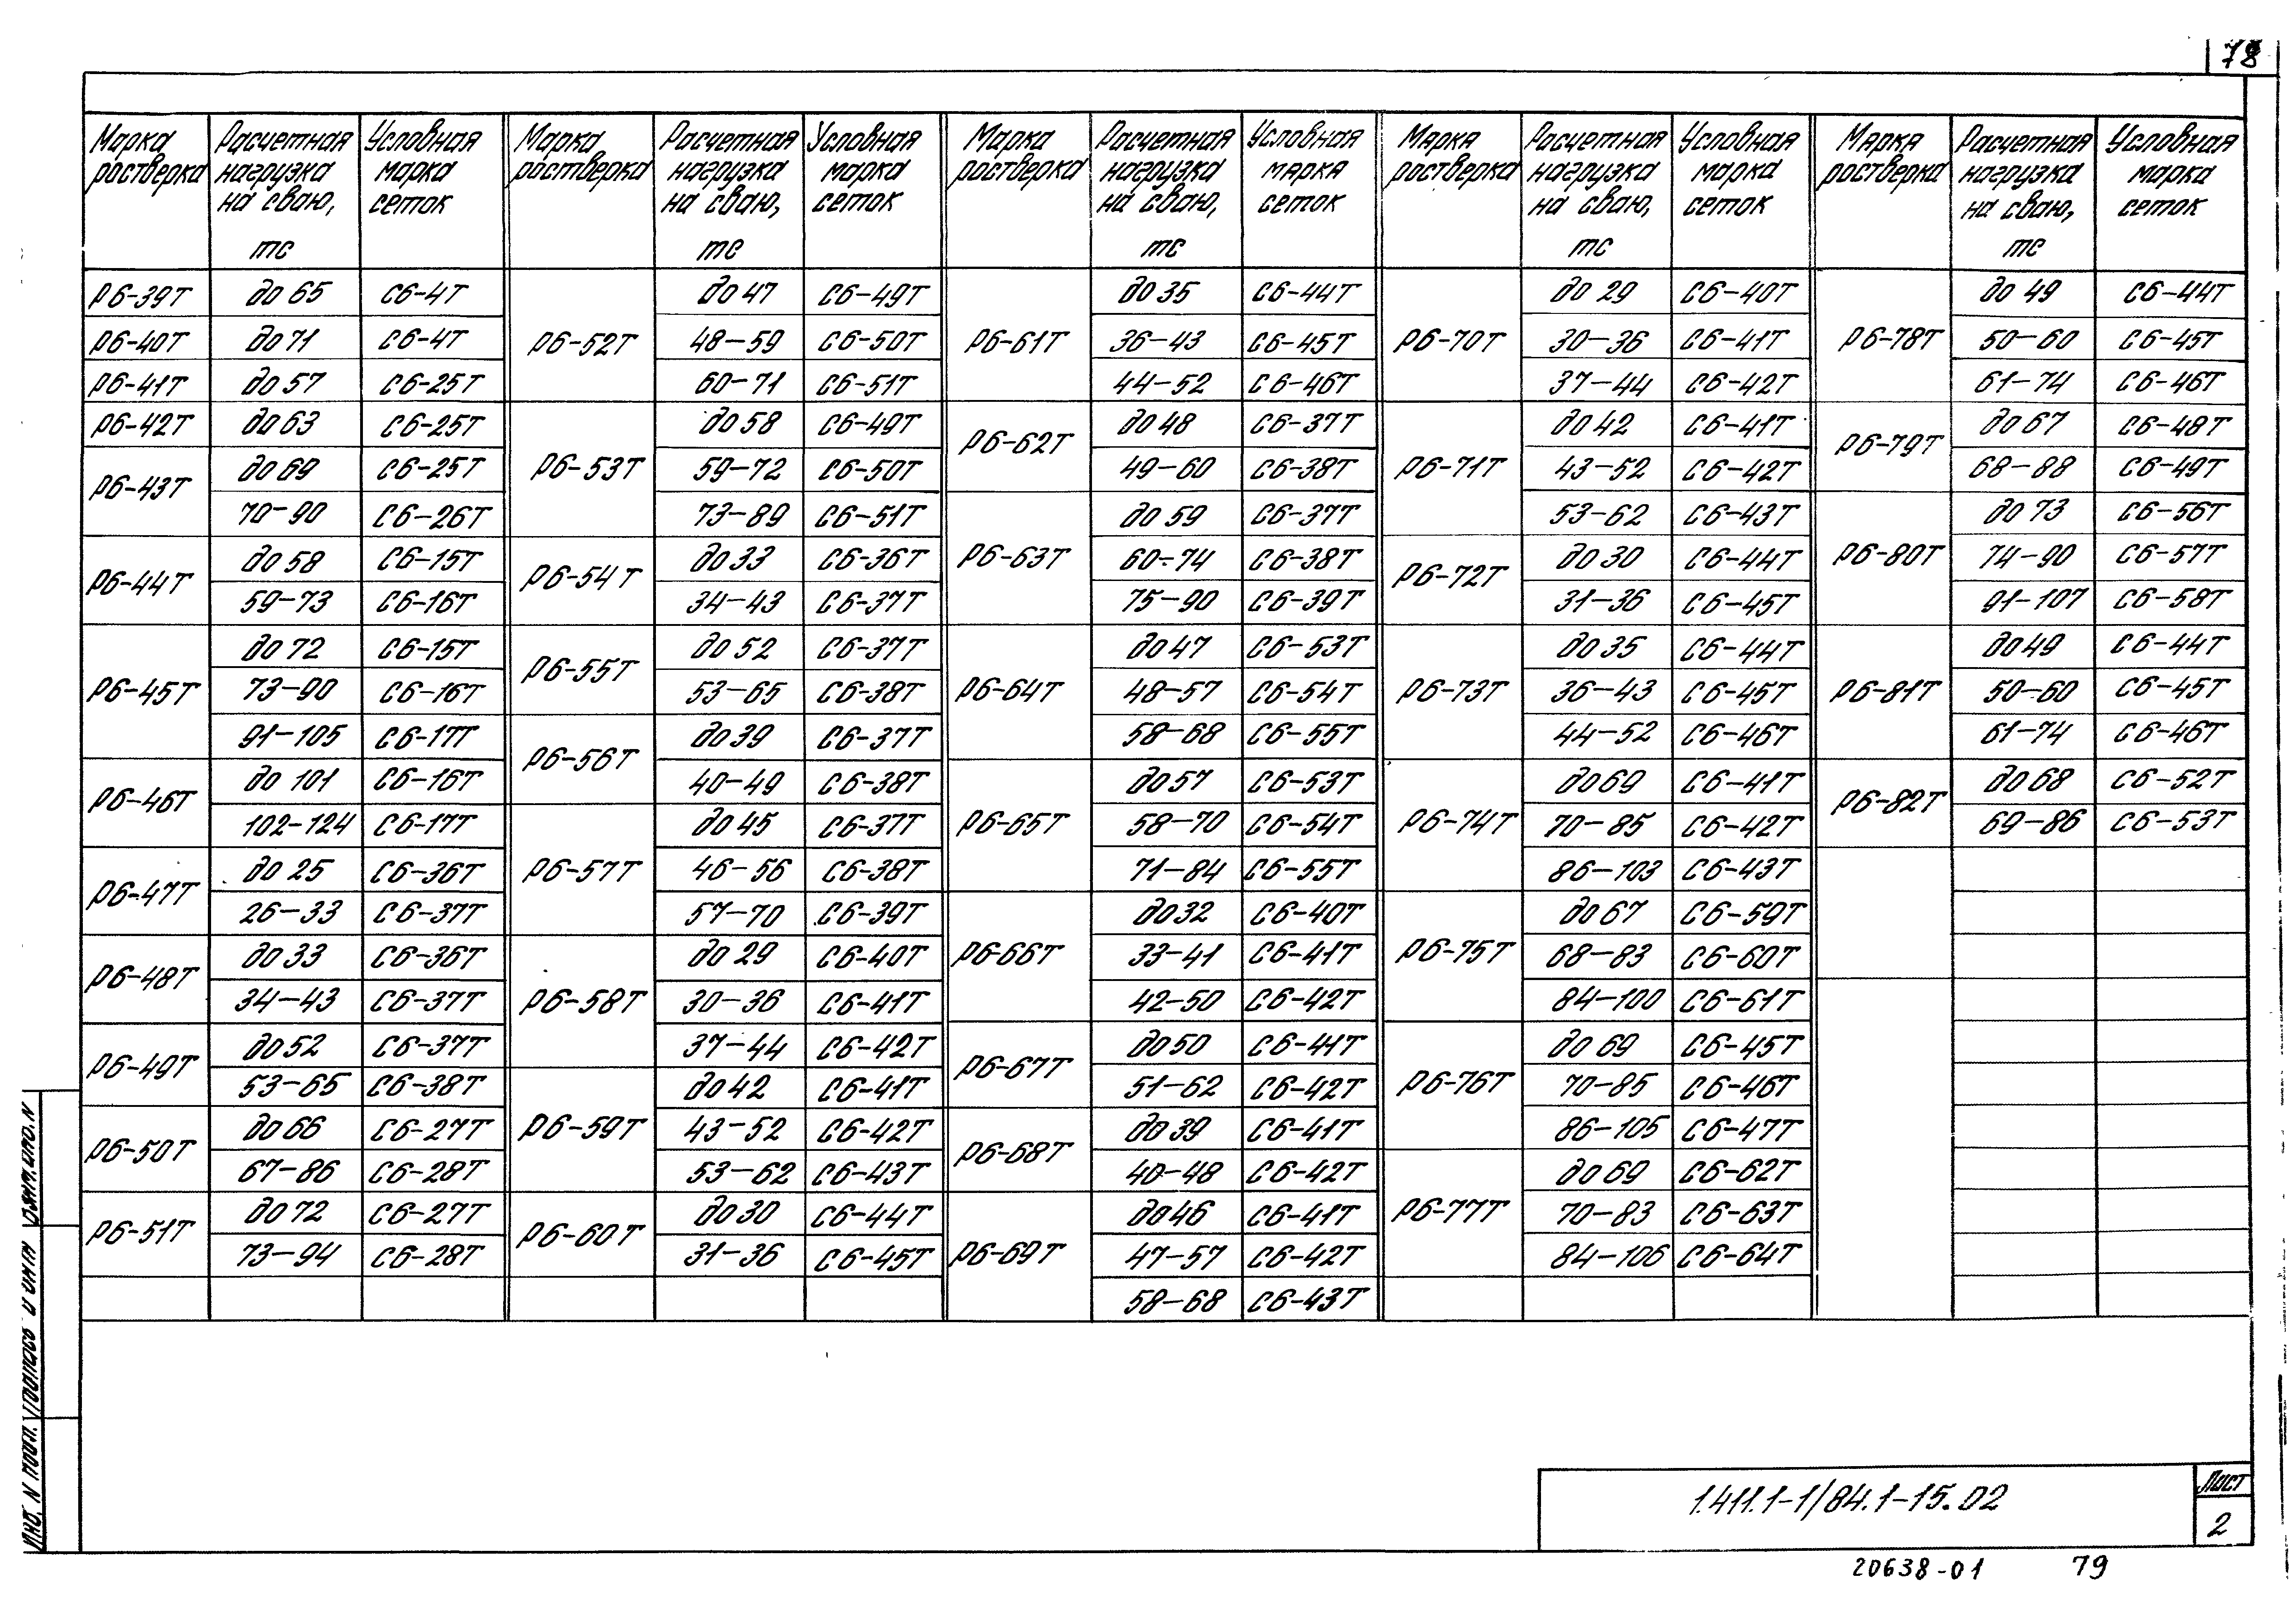 78
Марка ростверка | Расчетная нагрузка на сваю, тс | Условная марка сеток | Марка ростверка | Расчетная нагрузка на сваю, тс | Условная марка сеток | Марка ростверка | Расчетная нагрузка на сваю, тс | Условная марка сеток | Марка ростверка | Расчетная нагрузка на сваю, тс | Условная марка сеток | Марка ростверка | Расчетная нагрузка на сваю, тс | Условная марка сеток
Р6-39Т до 65 С6-4Т
Р6-40Т до 71 С6-4Т
Р6-41Т до 57 С6-25Т
Р6-42Т до 63 С6-25Т
Р6-43Т до 69 С6-25Т
70-90 С6-26Т
Р6-44Т до 58 С6-15Т
59-73 С6-16Т
Р6-45Т до 72 С6-15Т
73-90 С6-16Т
91-105 С6-17Т
Р6-46Т до 101 С6-16Т
102-124 С6-17Т
Р6-47Т до 25 С6-36Т
26-33 С6-37Т
Р6-48Т до 33 С6-36Т
34-43 С6-37Т
Р6-49Т до 52 С6-37Т
53-65 С6-38Т
Р6-50Т до 66 С6-27Т
67-86 С6-28Т
Р6-51Т до 72 С6-27Т
73-94 С6-28Т
Р6-52Т до 47 С6-49Т
48-59 С6-50Т
60-71 С6-51Т
Р6-53Т до 58 С6-49Т
59-72 С6-50Т
73-89 С6-51Т
Р6-54Т до 33 С6-36Т
34-43 С6-37Т
Р6-55Т до 52 С6-37Т
53-65 С6-38Т
Р6-56Т до 39 С6-37Т
40-49 С6-38Т
Р6-57Т до 45 С6-37Т
46-56 С6-38Т
57-70 С6-39Т
Р6-58Т до 29 С6-40Т
30-36 С6-41Т
37-44 С6-42Т
Р6-59Т до 42 С6-41Т
43-52 С6-42Т
53-62 С6-43Т
Р6-60Т до 30 С6-44Т
31-36 С6-45Т
Р6-61Т до 35 С6-44Т
36-43 С6-45Т
44-52 С6-46Т
Р6-62Т до 48 С6-37Т
49-60 С6-38Т
Р6-63Т до 59 С6-37Т
60-74 С6-38Т
75-90 С6-39Т
Р6-64Т до 47 С6-53Т
48-57 С6-54Т
58-68 С6-55Т
Р6-65Т до 57 С6-53Т
58-70 С6-54Т
71-84 С6-55Т
Р6-66Т до 32 С6-40Т
33-41 С6-41Т
42-50 С6-42Т
Р6-67Т до 50 С6-41Т
51-62 С6-42Т
Р6-68Т до 39 С6-41Т
40-48 С6-42Т
Р6-69Т до 46 С6-41Т
47-57 С6-42Т
58-68 С6-43Т
Р6-70Т до 29 С6-40Т
30-36 С6-41Т
37-44 С6-42Т
Р6-71Т до 42 С6-41Т
43-52 С6-42Т
53-62 С6-43Т
Р6-72Т до 30 С6-44Т
31-36 С6-45Т
Р6-73Т до 35 С6-44Т
36-43 С6-45Т
44-52 С6-46Т
Р6-74Т до 69 С6-41Т
70-85 С6-42Т
86-103 С6-43Т
Р6-75Т до 67 С6-59Т
68-83 С6-60Т
84-100 С6-61Т
Р6-76Т до 69 С6-45Т
70-85 С6-46Т
86-105 С6-47Т
Р6-77Т до 69 С6-62Т
70-83 С6-63Т
84-106 С6-64Т
Р6-78Т до 49 С6-44Т
50-60 С6-45Т
61-74 С6-46Т
Р6-79Т до 67 С6-48Т
68-88 С6-49Т
Р6-80Т до 73 С6-56Т
74-90 С6-57Т
91-107 С6-58Т
Р6-81Т до 49 С6-44Т
50-60 С6-45Т
61-74 С6-46Т
Р6-82Т до 68 С6-52Т
69-86 С6-53Т
Инв. N подл.
1.411.1-1/84.1-15.02
Лист
2
20638-01 79